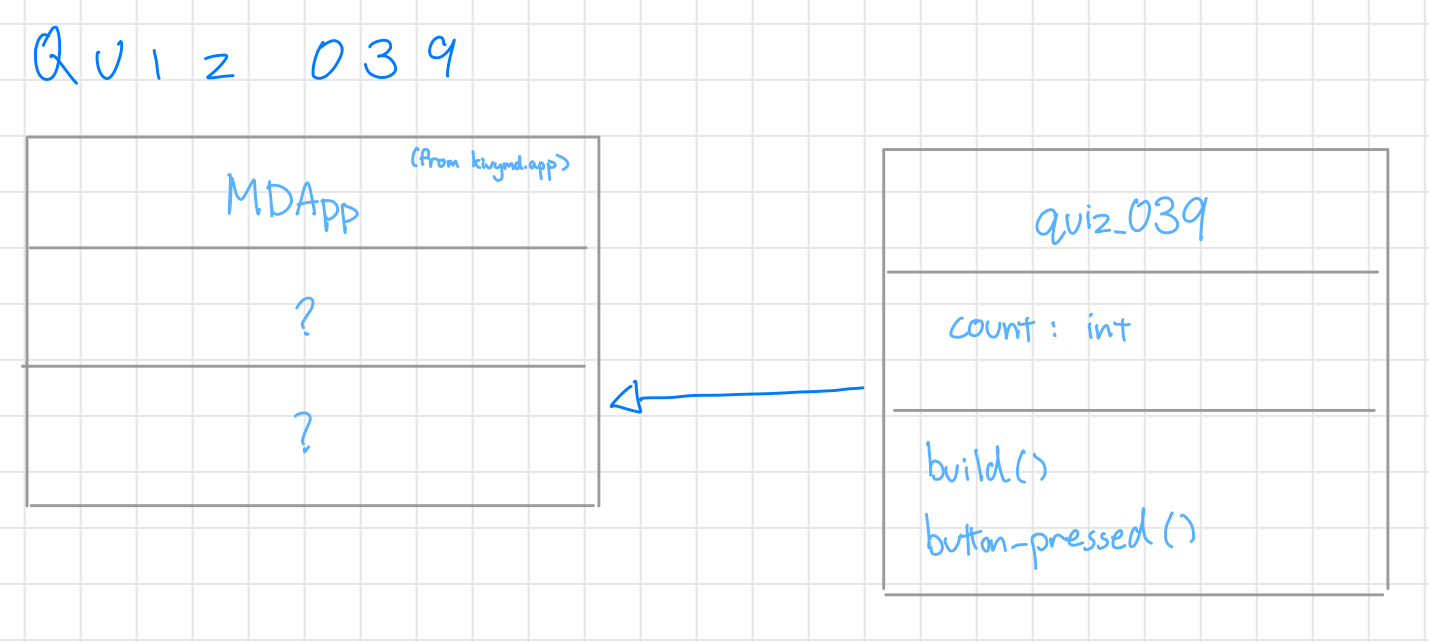 Quiz 039
(from kivymd.app)
MDApp
?
?
quiz_039
count: int
build()
button_pressed()